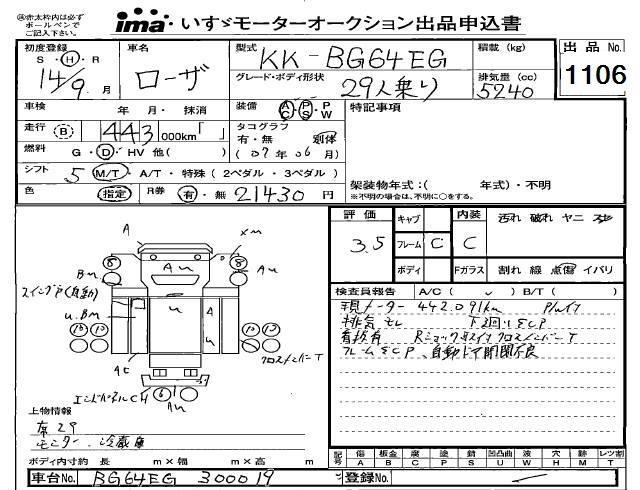 ㊟赤太枠内は必ず
ボールペンで
ご記入下さい。
ima・いすゞモーターオークション出品申込書
初度登録 車名 型式 KK-BG64EG 積載 (kg) 出品No.
S・H・R
14/9 月 ローザ グレード・ボディ形状 29人乗り 排気量 (cc) 5240 1106
車検 年 月・ 抹消 装備 A/C・P/S・P/W 特記事項
走行 B 443 000km「 」 タコグラフ 有・無 別体
燃料 G・D・HV 他( ) (07年06月)
シフト 5 M/T・A/T・特殊 (2ペダル・3ペダル) 架装物年式:( 年式)・不明
色 指定 R券 有・無 21430 円 ※不明の場合は、不明に○をする。
評価 3.5 キャブ 内装 C 汚れ 破れ ヤニ
フレーム C
ボディ Fガラス 割れ 線 点傷 イバリ
検査員報告 A/C ( ) B/T ( )
現メーター 442.091km
排気モレ 下回りSCP
フレームSCP、自動ドア開閉不良
A xm
8 8
Bm Au Au
スイングP(自動)
u.Bm u Au
10 10 10 13
クロスメンバーT
AC
エンドパネルCH 6 Au
上物情報
席29
モニター、冷蔵庫
ボディ内寸約 長 m×幅 m×高 m
記号 傷A 板金B 腐C 塗P 錆S 凹凸曲U 波W 穴H 跡M レツ割T
車台No. BG64EG 300019 登録No.